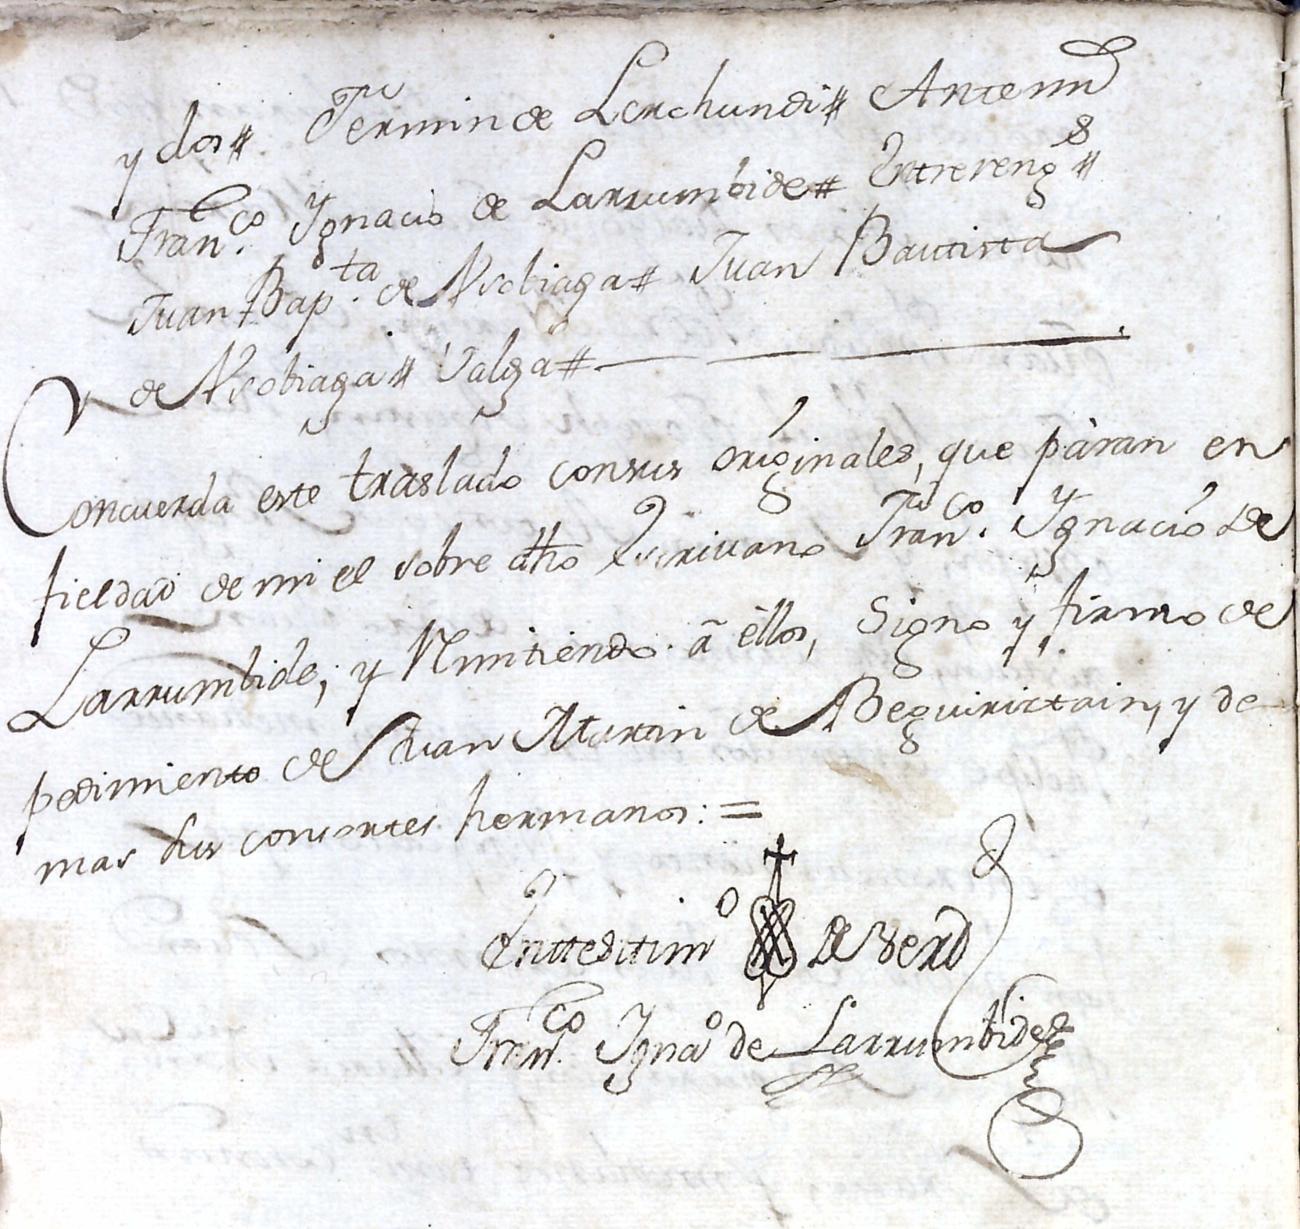 y dos # Fermin de Lerchundi # Antemi
Fran.co Ygnacio de Larrumbide # Entrereng.s #
Juan Bap.ta de Ascobiaga # Juan Bautista
de Ascobiaga # Valga #
Concuerda este traslado consus originales, que pàran en
fieldad de mi el sobre dho Escrivano Fran.co Ygnacio de
Larrumbide; y Rimitiendo à ellos, Signo y firmo de
pedimiento de Juan Martin de Beguiristain, y de
mas sus consortes hermanos: =
Enttestim.o de Verd
Fran.co Ygna.o de Larrumbide